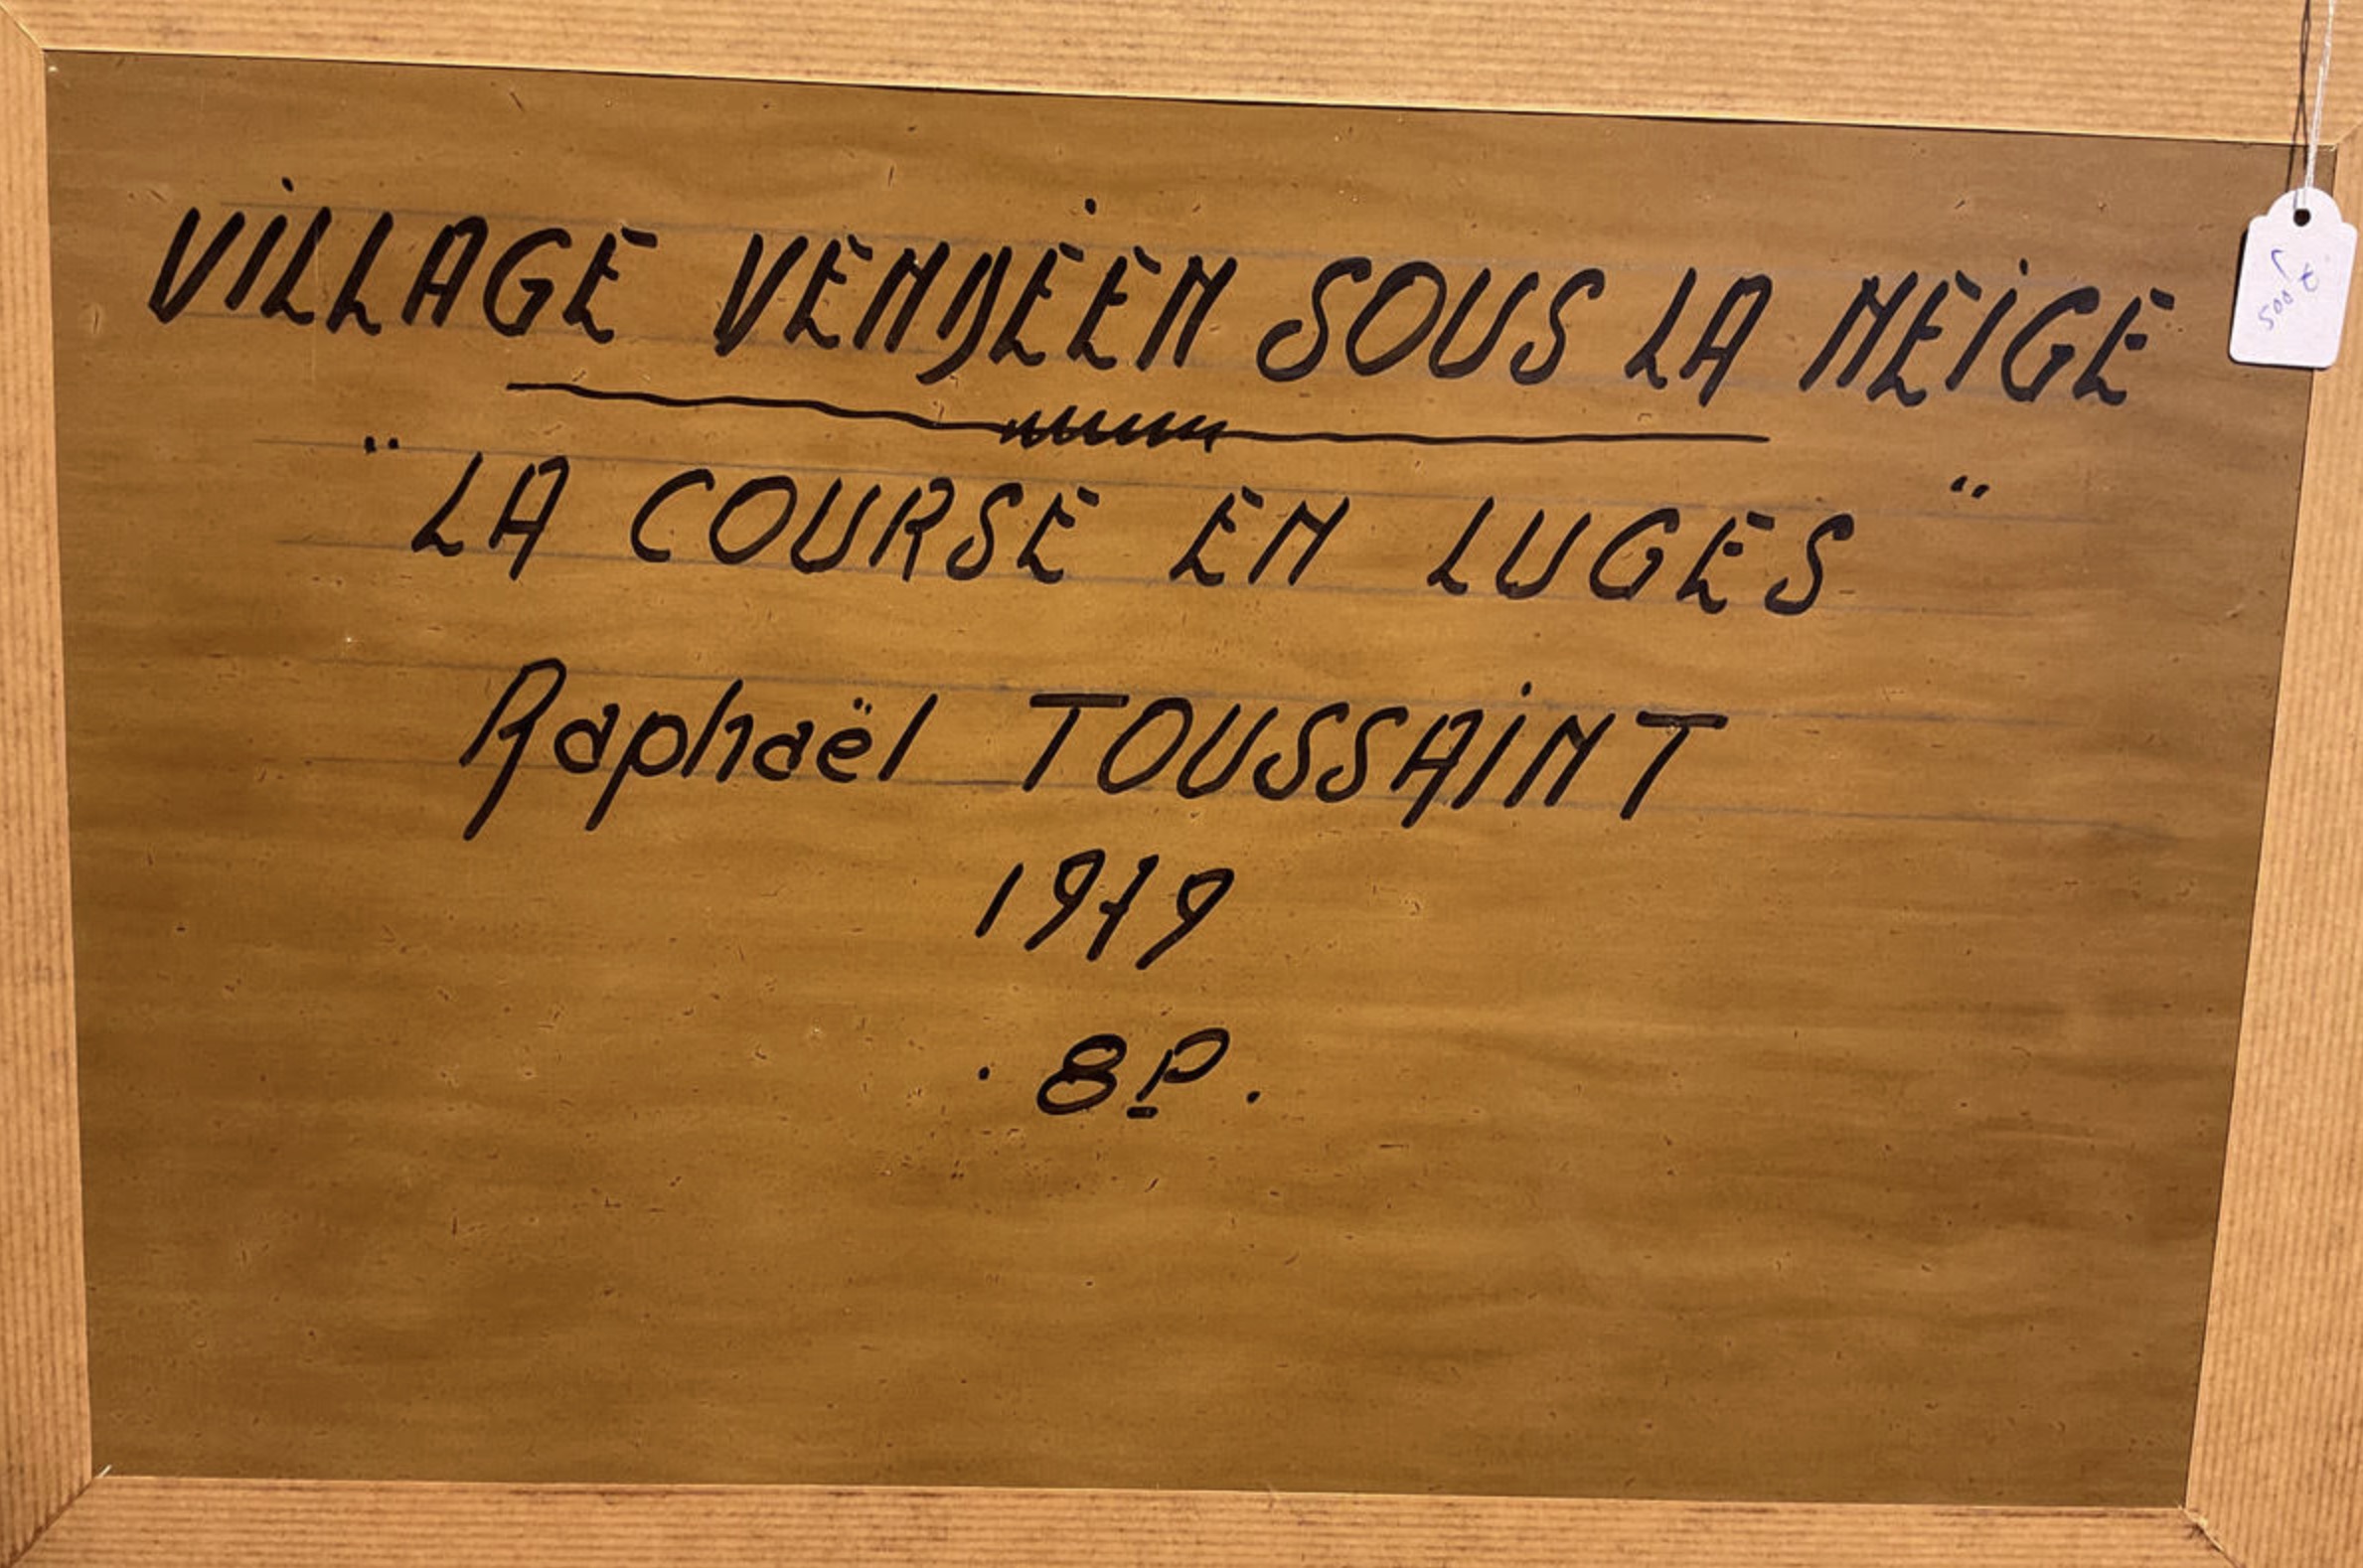 VILLAGE VENDÉEN SOUS LA NEIGE
"LA COURSE EN LUGES"
Raphaël TOUSSAINT
1979
. 8P.